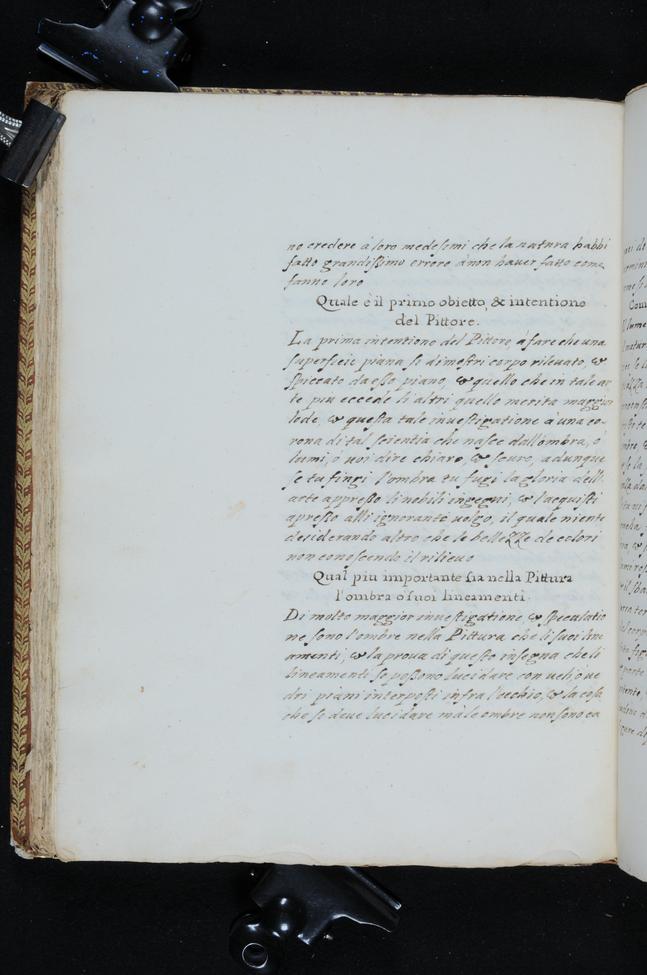 no credere à loro medesemi che la natura habbi
fatto grandissimo errore à non haver fatto come
fanno loro
Quale è il primo obietto, & intentione
del Pittore.
La prima intentione del Pittore, à fare che una
superficie piana si dimostri corpo rilevato, &
spiccato da esso piano, & quello che in tale ar
te piu eccede li altri quello merita maggior
lode, & questa tale investigatione à una co-
rona di tal scientia che nasce dall'ombra, ò
lumi, ò voi dire chiaro, & scuro, adunque
se tu fingi l'ombra tu fugi la gloria dell'
arte appresso li nobili ingegni, & l'acquisti
apresso alli ignorante volgo, il quale niente
desiderando altro che le bellezze de colori
non conoscendo il rilievo
Qual piu importante sia nella Pittura
l'ombra o suoi lineamenti.
Di molto maggior investigatione, & speculatio
ne sono l'ombre nella Pittura che li suoi line
amenti, & la prova di questo insegna che li
lineamenti se possono lucidare con veli, o ve
dri piani interposti infra l'occhio, & la cosa
che si deve lucidare mà le ombre non sono ca